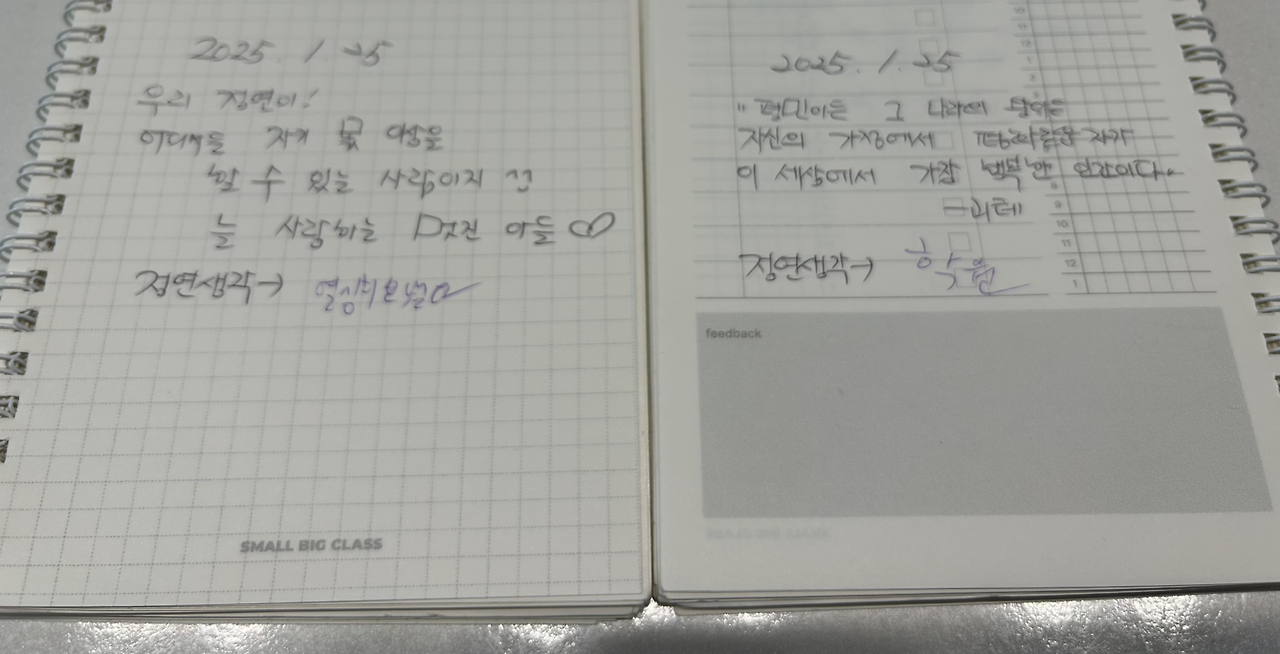 2025. 1. 25
우리 정연이!
어디서든 자기 몫 이상을
할 수 있는 사람이지 !!
늘 사랑하는 멋진 아들
정연생각→ 열심히
SMALL BIG CLASS
2025. 1. 25
" 그 나라에
자신의 가정에서 평화로운 자가
이 세상에서 가장 행복한 인간이다.
-괴테
정연생각→
9
10
11
12
1
feedback